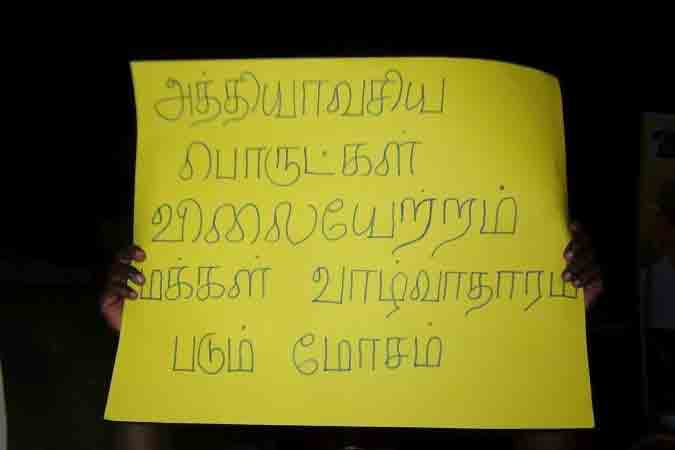 அத்தியாவசிய
பொருட்கள்
விலையேற்றம்
மக்கள் வாழ்வாதாரம்
படும் மோசம்